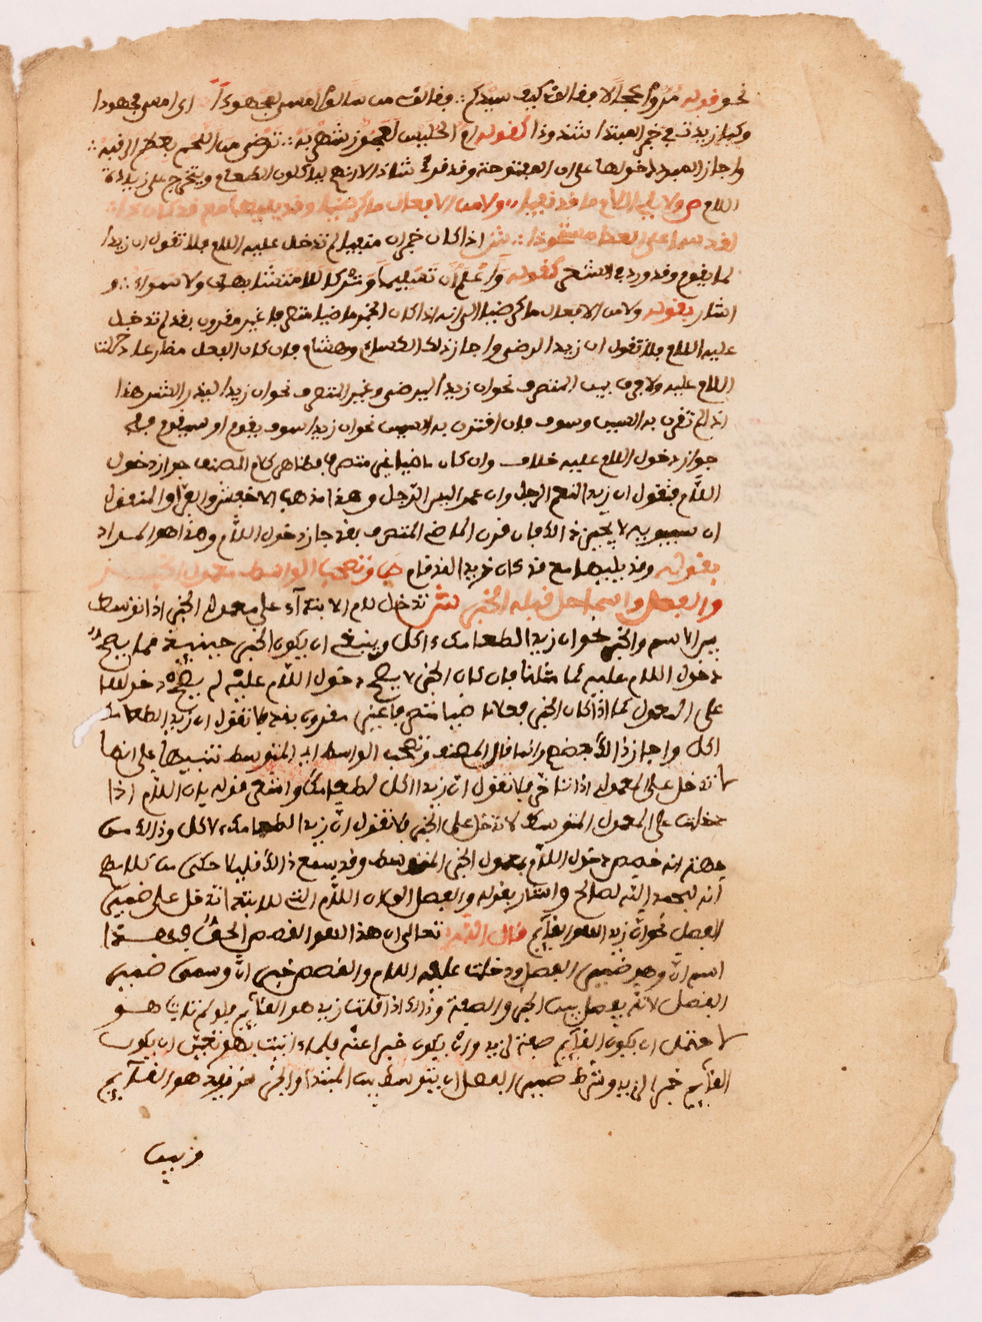 نحو قوله مروا عجالا وقالوا كيف سيدكم ∴ فقال من سألوا أمسى لمجهودا أي أمسى مجهودا
وكما زيدت في خبر المبتدا شذوذا كقوله أم الحليس لعجوز شهربه ∴ ترضى من اللحم بعظم الرقبه ∴
واجاز المبرد دخولها على ان المفتوحة وقد قرئ شاذا الا انهم ليأكلون الطعام ويتخرج على زيادة
اللام ص ولا يلي ذا اللام ما قد نفيا ∴ ولا من الافعال ما كرضيا وقد يليها مع قد كان ذا
لقد سما على العدا مستحوذا ∴ ش اذا كان خبر ان منفيا لم تدخل عليه اللام فلا تقول ان زيدا
لما يقوم وقد ورد في الشعر كقوله وأعلم أن تسليما وتركا للا متشابهان ولا سواء ∴ و
اشار بقوله ولا من الافعال ما كرضيا الى انه اذا كان الخبر ماضيا متصرفا غير مقرون بقد لم تدخل
عليه اللام فلا تقول ان زيدا لرضي واجاز ذلك الكسائي وهشام فان كان الفعل مضارعا دخلت
اللام عليه ولا فرق بين المتصرف نحو ان زيدا ليرضى وغير المتصرف نحو ان زيدا ليذر الشر هذا
اذا لم تقترن به السين وسوف فان اقترن به السين نحو ان زيدا سوف يقوم او سيقوم ففي
جواز دخول اللام عليه خلاف وان كان ماضيا غير متصرف فظاهر كلام المصنف جواز دخول
اللّام فتقول ان زيدا لنعم الرجل وان عمرا لبيس الرّجل وهذا مذهب الاخفش والفرّا والمنقول
ان سيبويه لا يجيز ذالك فان قرن الماضي المتصرف بقد جاز دخول اللّام وهذا هو المراد
بقوله وقد يليها مع قد كان نحو زيدا لقد قام ص وتصحب الواسط معمول الخبر
والفصل واسما حل قبله الخبر ش تدخل لام الابتدآء على معمول الخبر اذا توسط
بين الاسم والخبر نحو ان زيدا لطعامك ءاكل وينبغي ان يكون الخبر حينئذ مما يصح
دخول اللام عليه كما مثلنا فان كان الخبر لا يصح دخول اللّام عليه لم يصح دخولها
على المعمول كما اذا كان الخبر فعلا ماضيا متصرفا غير مقرون بقد فلا تقول ان زيدا لطعامك
اكل واجاز ذالك بعضهم وانما قال المصنف وتصحب الواسط اي المتوسط تنبيها على انها
لا تدخل على المعمول اذا تأخر فلا تقول انّ زيدا اكل لطعامك واشعر قوله بان اللّام اذا
دخلت على المعمول المتوسط لا تدخل على الخبر فلا تقول انّ زيدا لطعامك لاكل وذالك من
جهة انه خصص دخول اللّام بمعمول الخبر المتوسط وقد سمع ذالك قليلا حكى من كلامهم
انى لبحمد الله لصالح واشار بقوله والفصل الى ان اللّام التي للابتدا تدخل على ضمير
الفصل نحو انّ زيدا لهو القآئم قال الله تعالى ان هذا لهو القصص الحقّ فهذا
اسم انّ وهو ضمير الفصل ودخلت عليه اللام والقصص خبر انّ وسمي ضمير
الفصل لانّه يفصل بين الخبر والصفة وذالك اذا قلت زيد هو القآئم فلو لم تات بهو
لاحتمل ان يكون القآئم صفة لزيد وان يكون خبرا عنه فلما اتيت بهو تعين ان يكون
القآئم خبرا لزيد وشرط ضمير الفصل ان يتوسط بين المبتدا والخبر نحو زيد هو القآئم